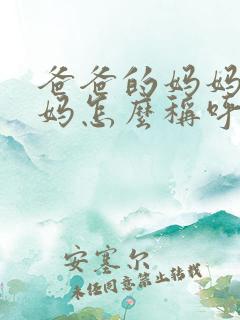 爸爸的妈妈
妈怎麼稱呼
安塞尔
未经同意禁止转载